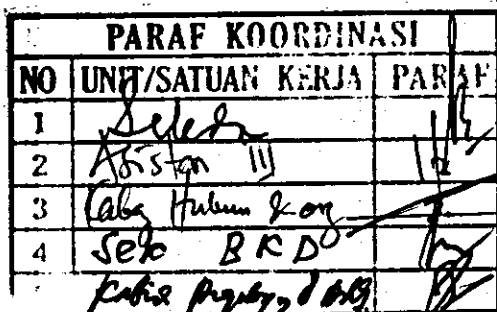 PARAF KOORDINASI
NO UNIT/SATUAN KERJA PARAF
1 Sekda
2 Asisten III
3 Kabag Hukum & Org
4 Sek BKD